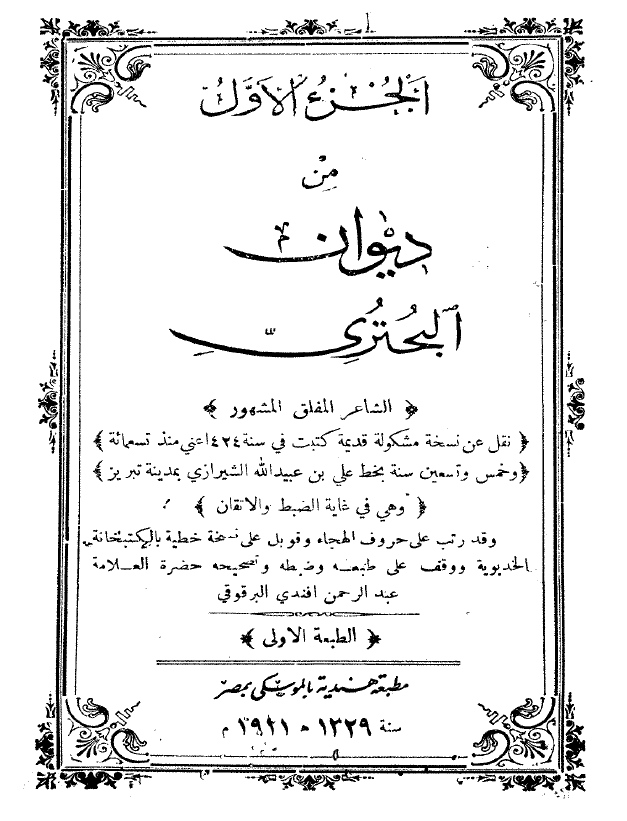 الْجُزْءُ الْأَوَّلُ
مِنْ
دِيْوَان
الْبُحْتُرِيِّ
﴿ الشاعر المفلق المشهور ﴾
﴿ نقل عن نسخة مشكولة قديمة كتبت في سنة ٤٢٤ اعني منذ تسعمائة ﴾
﴿ وخمس وتسعين سنة بخط علي بن عبيدالله الشيرازي بمدينة تبريز ﴾
﴿ وهي في غاية الضبط والاتقان ﴾
وقد رتب على حروف الهجاء وقوبل على نسخة خطية بالكتبخانة
الخديوية ووقف على طبعه وضبطه وتصحيحه حضرة العلامة
عبد الرحمن افندي البرقوقي
﴿ الطبعة الاولى ﴾
مطبعة هندية بالموسكي بمصر
سنة ١٣٢٩ هـ ١٩١١ م